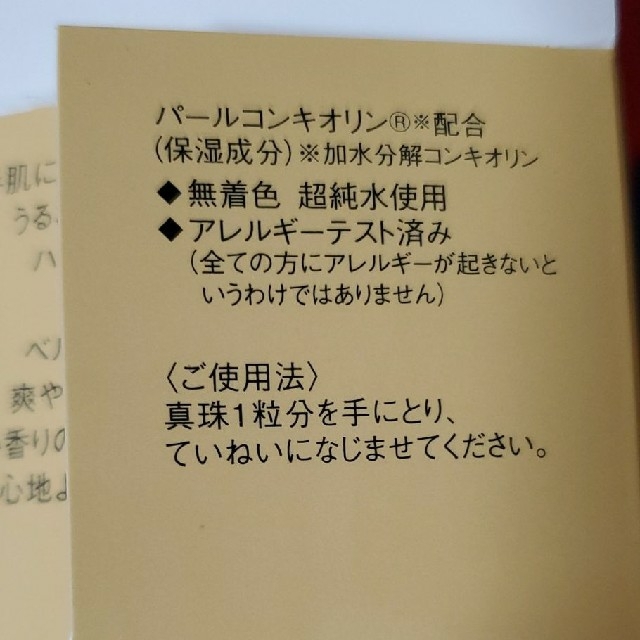 パールコンキオリン®※配合
(保湿成分)※加水分解コンキオリン
◆無着色 超純水使用
◆アレルギーテスト済み
(全ての方にアレルギーが起きないと
いうわけではありません)
〈ご使用法〉
真珠1粒分を手にとり、
ていねいになじませてください。
肌に
うる
ハ
ベ
爽や
香りの
心地よ